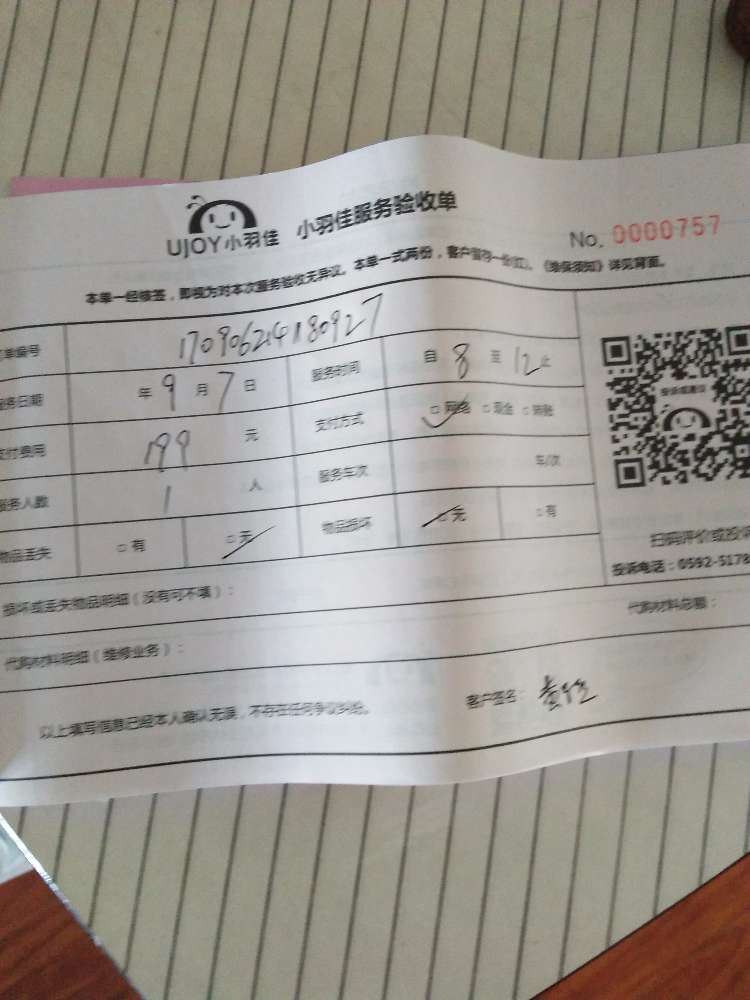 UJOY小羽佳 小羽佳服务验收单
No. 0000757
本单一经核签，即视为对本次服务验收无异议。本单一式两份，客户留存一份(红)。《维保须知》详见背面。
单编号 170906214180927
务日期 年 9 月 7 日 服务时间 自 8 至 12 止
付费用 199 元 支付方式 □网络 □现金 □转账
服务人数 1 人 服务车次 车/次
物品丢失 □有 □无 物品损坏 □无 □有
扫码评价或投诉
投诉电话：0592-5178
损坏或丢失物品明细（没有可不填）：
代购材料明细（维修业务）： 代购材料总额：
以上填写信息已经本人确认无误，不存在任何争议纠纷。 客户签名：